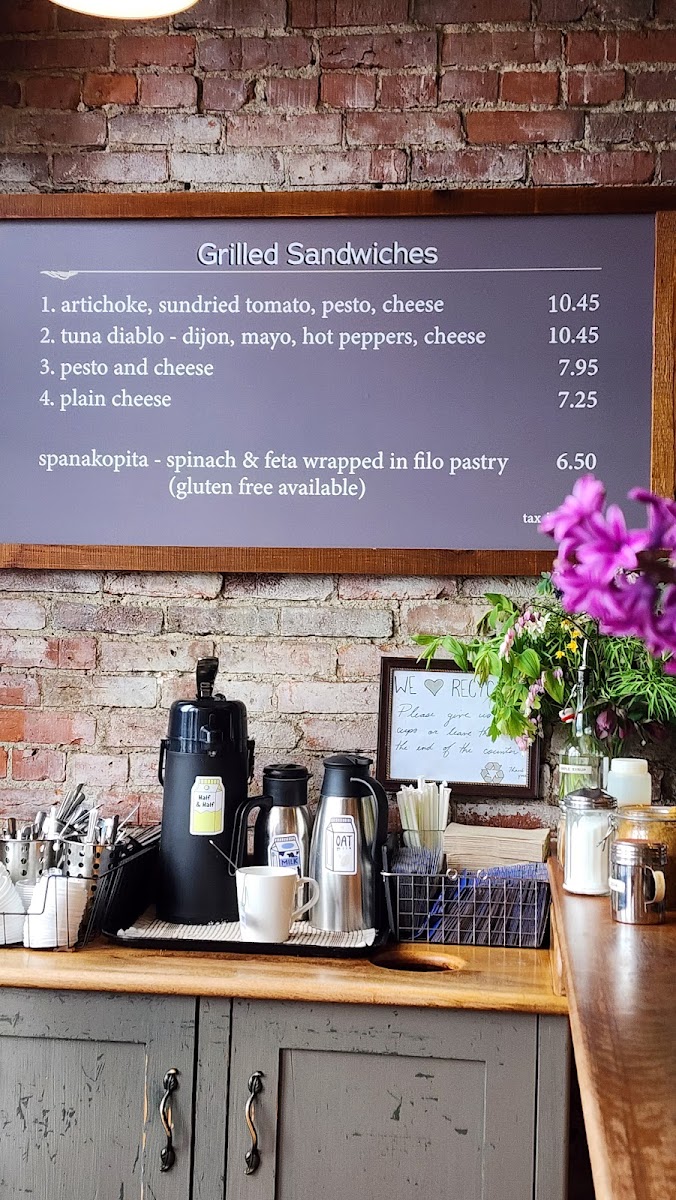 Grilled Sandwiches
1. artichoke, sundried tomato, pesto, cheese 10.45
2. tuna diablo - dijon, mayo, hot peppers, cheese 10.45
3. pesto and cheese 7.95
4. plain cheese 7.25
spanakopita - spinach & feta wrapped in filo pastry 6.50
(gluten free available)
tax
WE RECYC
Please give us
cups or leave
the end of the counter
Thank
Half
& Half
MILK
OAT